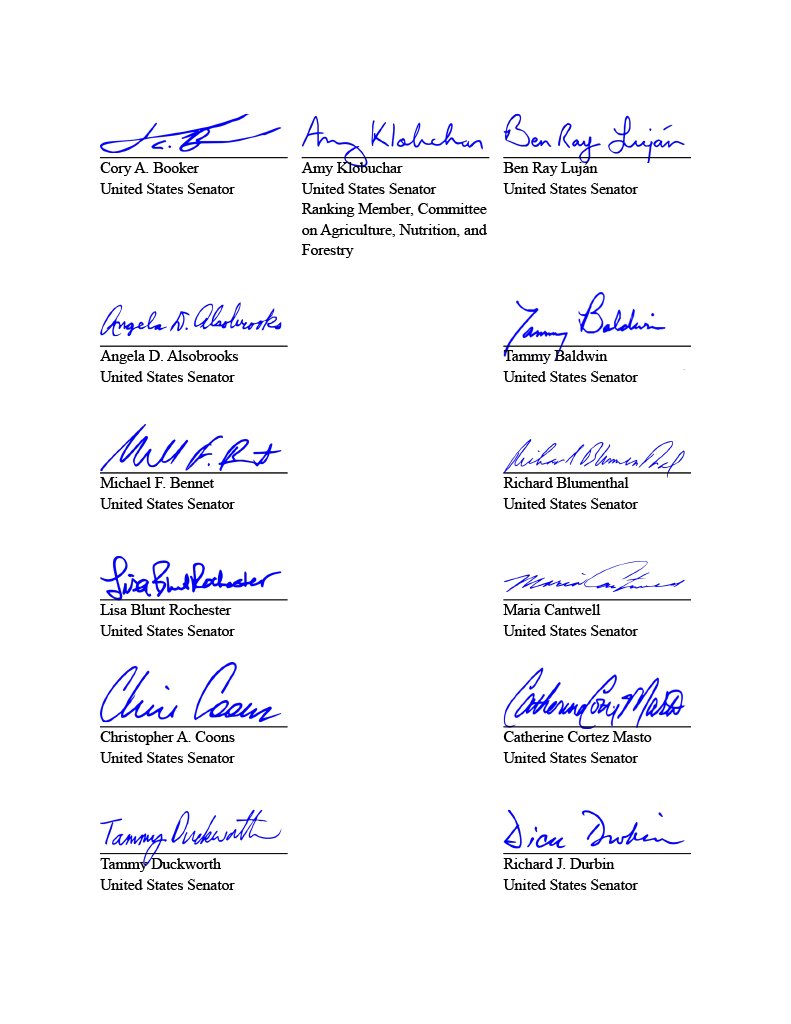 Cory A. Booker
United States Senator
Amy Klobuchar
Amy Klobuchar
United States Senator
Ranking Member, Committee
on Agriculture, Nutrition, and
Forestry
Ben Ray Luján
Ben Ray Luján
United States Senator
Angela D. Alsobrooks
Angela D. Alsobrooks
United States Senator
Tammy Baldwin
Tammy Baldwin
United States Senator
Michael F. Bennet
United States Senator
Richard Blumenthal
Richard Blumenthal
United States Senator
Lisa Blunt Rochester
Lisa Blunt Rochester
United States Senator
Maria Cantwell
Maria Cantwell
United States Senator
Chris Coons
Christopher A. Coons
United States Senator
Catherine Cortez Masto
Catherine Cortez Masto
United States Senator
Tammy Duckworth
Tammy Duckworth
United States Senator
Dick Durbin
Richard J. Durbin
United States Senator